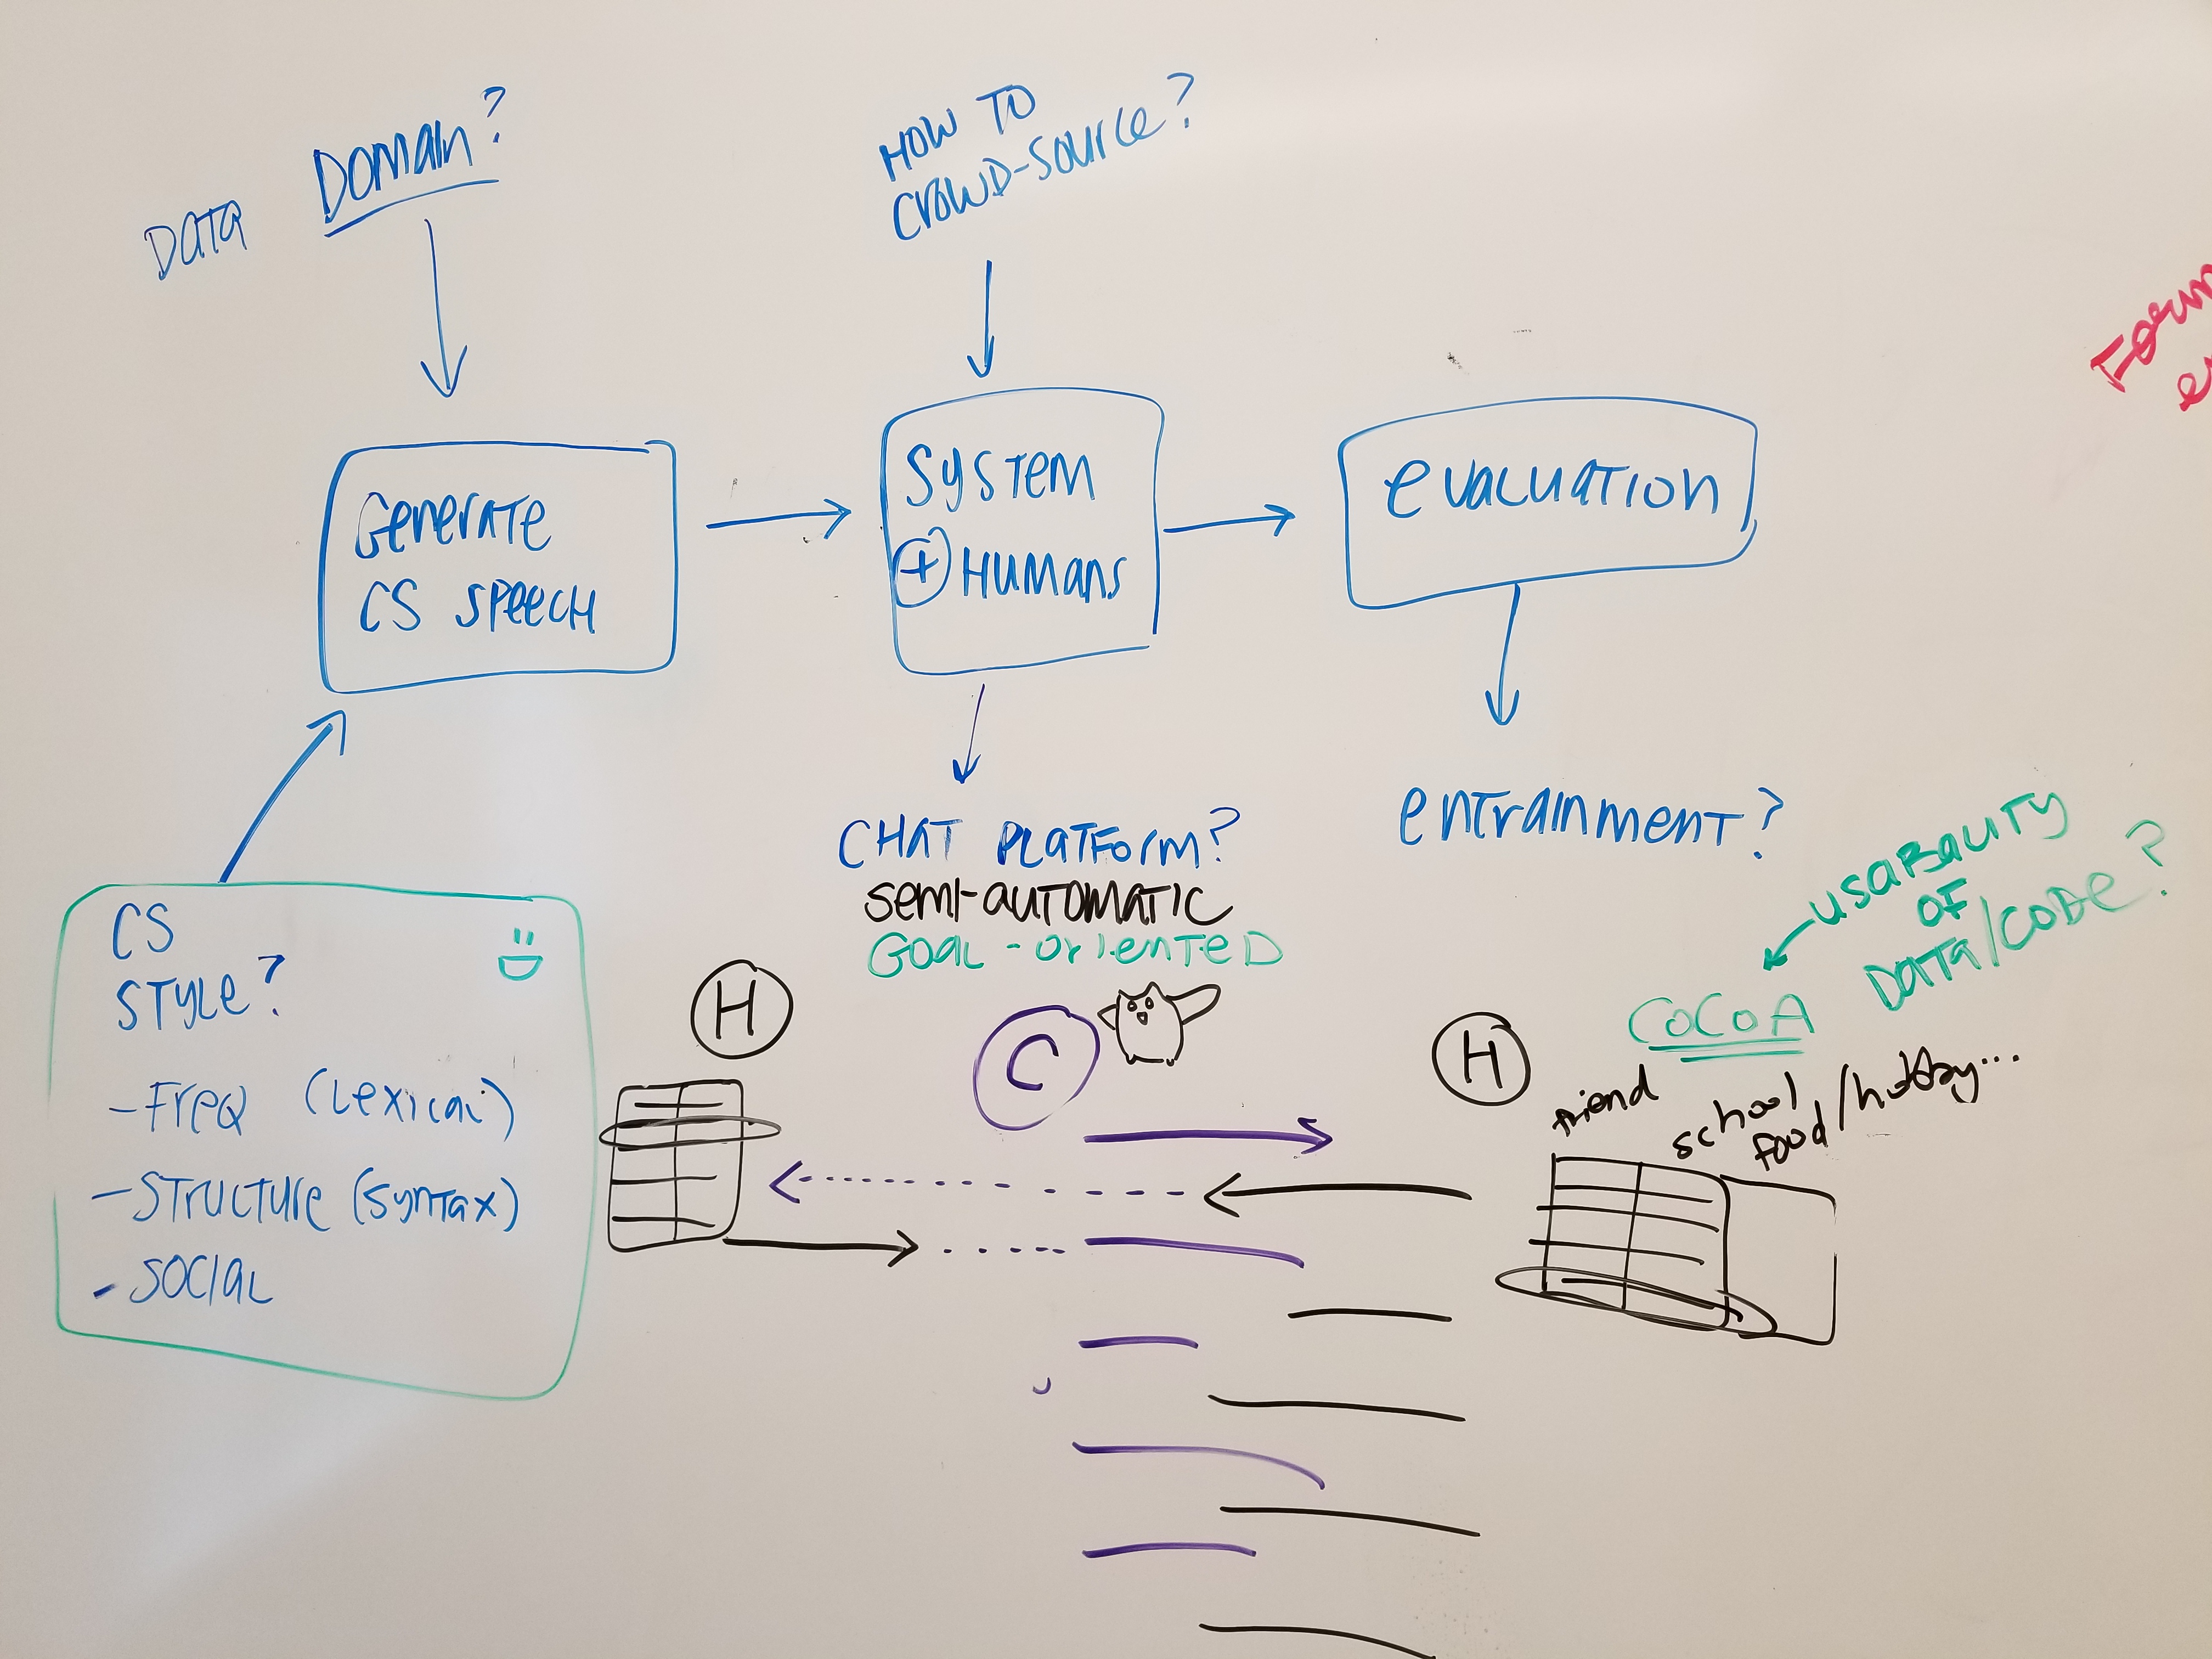 DATA DOMAIN?
HOW TO
CROWD-SOURCE?
Form
e
Generate
CS SPEECH
SYSTEM
+ HUMANS
evaluation
CHAT PLATFORM?
semi-automatic
GOAL-oriented
entrainment?
usabality
OF
DATA/CODE?
CoCoA
CS
STYLE?
- Freq (Lexical)
- Structure (syntax)
- Social
H
C
H
friend
school
food/hobby...